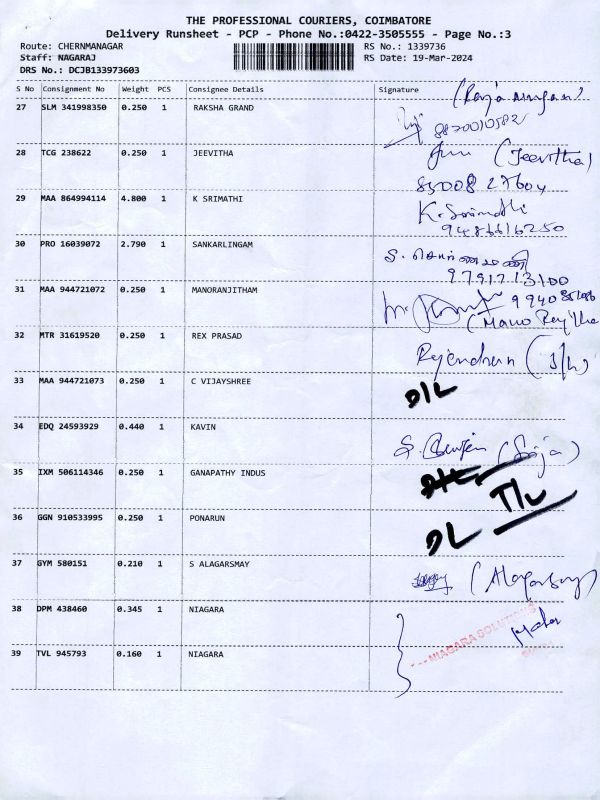 THE PROFESSIONAL COURIERS, COIMBATORE
Delivery Runsheet - PCP - Phone No.:0422-3505555 - Page No.:3
Route: CHERNMANAGAR RS No.: 1339736
Staff: NAGARAJ RS Date: 19-Mar-2024
DRS No.: DCJB133973603
S No Consignment No Weight PCS Consignee Details Signature
27 SLM 341998350 0.250 1 RAKSHA GRAND
8870010582
28 TCG 238622 0.250 1 JEEVITHA (Jeevitha)
85008 27604
29 MAA 864994114 4.800 1 K SRIMATHI K. Srimathi
9486616250
30 PRO 16039072 2.790 1 SANKARLINGAM
9791713100
31 MAA 944721072 0.250 1 MANORANJITHAM
32 MTR 31619520 0.250 1 REX PRASAD Rajendran
33 MAA 944721073 0.250 1 C VIJAYSHREE D/L
34 EDQ 24593929 0.440 1 KAVIN
35 IXM 506114346 0.250 1 GANAPATHY INDUS T/L
36 GGN 910533995 0.250 1 PONARUN DL
37 GYM 580151 0.210 1 S ALAGARSMAY
38 DPM 438460 0.345 1 NIAGARA
NIAGARA SOLUTIONS
39 TVL 945793 0.160 1 NIAGARA